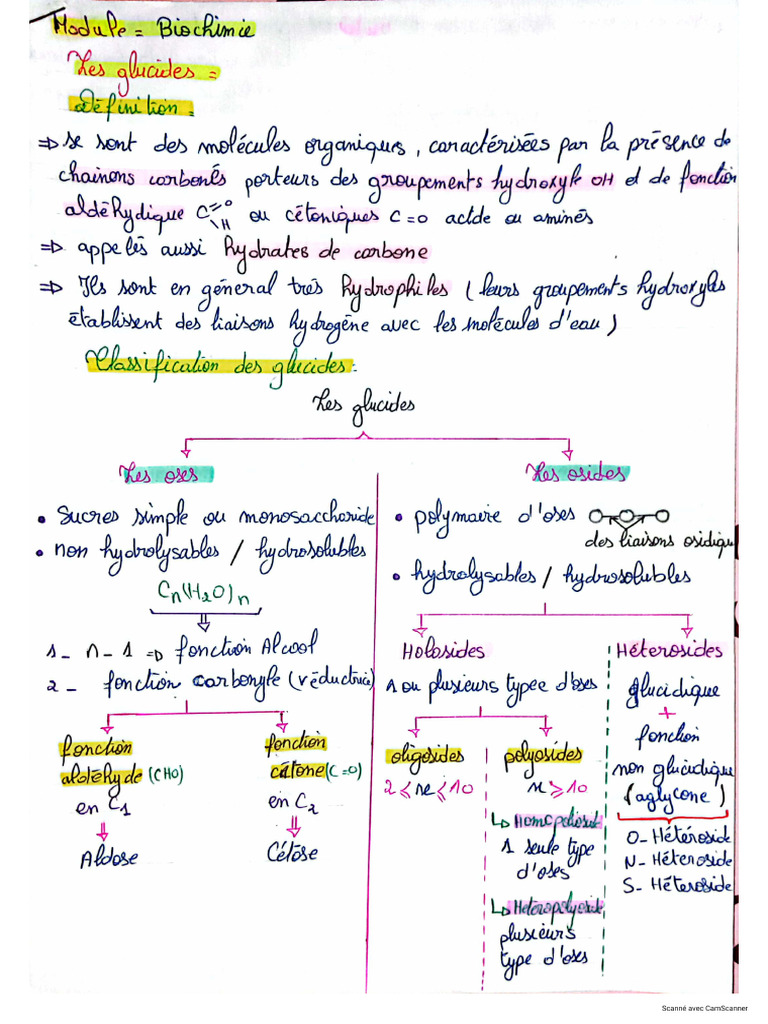 Module = Biochimie
Les glucides =
Définition =
⇒ se sont des molécules organiques, caractérisées par la présence de
chainons carbonés porteurs des groupements hydroxyle OH et de fonction
aldéhydique C =O \H ou cétoniques C=O acide ou aminés
⇒ appelés aussi hydrates de carbone
⇒ Ils sont en général très hydrophiles (leurs groupements hydroxyles
établissent des liaisons hydrogène avec les molécules d'eau)
Classification des glucides =
Les glucides
Les oses
• Sucres simple ou monosaccharide
• non hydrolysables / hydrosolubles
Cn(H2O)n
1 - n-1 ⇒ fonction Alcool
2 - fonction carbonyle (réductrice)
fonction
aldéhyde (CHO)
en C1
Aldose
fonction
cétone (C=O)
en C2
Cétose
Les osides
• polymaire d'oses
des liaisons osidique
• hydrolysables / hydrosolubles
Holosides
1 ou plusieurs typee d'oses
oligosides
2 ⩽ n ⩽ 10
polyosides
n ⩾ 10
↳ Homopoliosid
1 seule type
d'oses
↳ Heteropolyosid
plusieurs
type d'oses
Héterosides
glucidique
+
fonction
non glucidique
(aglycone)
O- Hétéroside
N- Héteroside
S- Héteroside
Scanné avec CamScanner